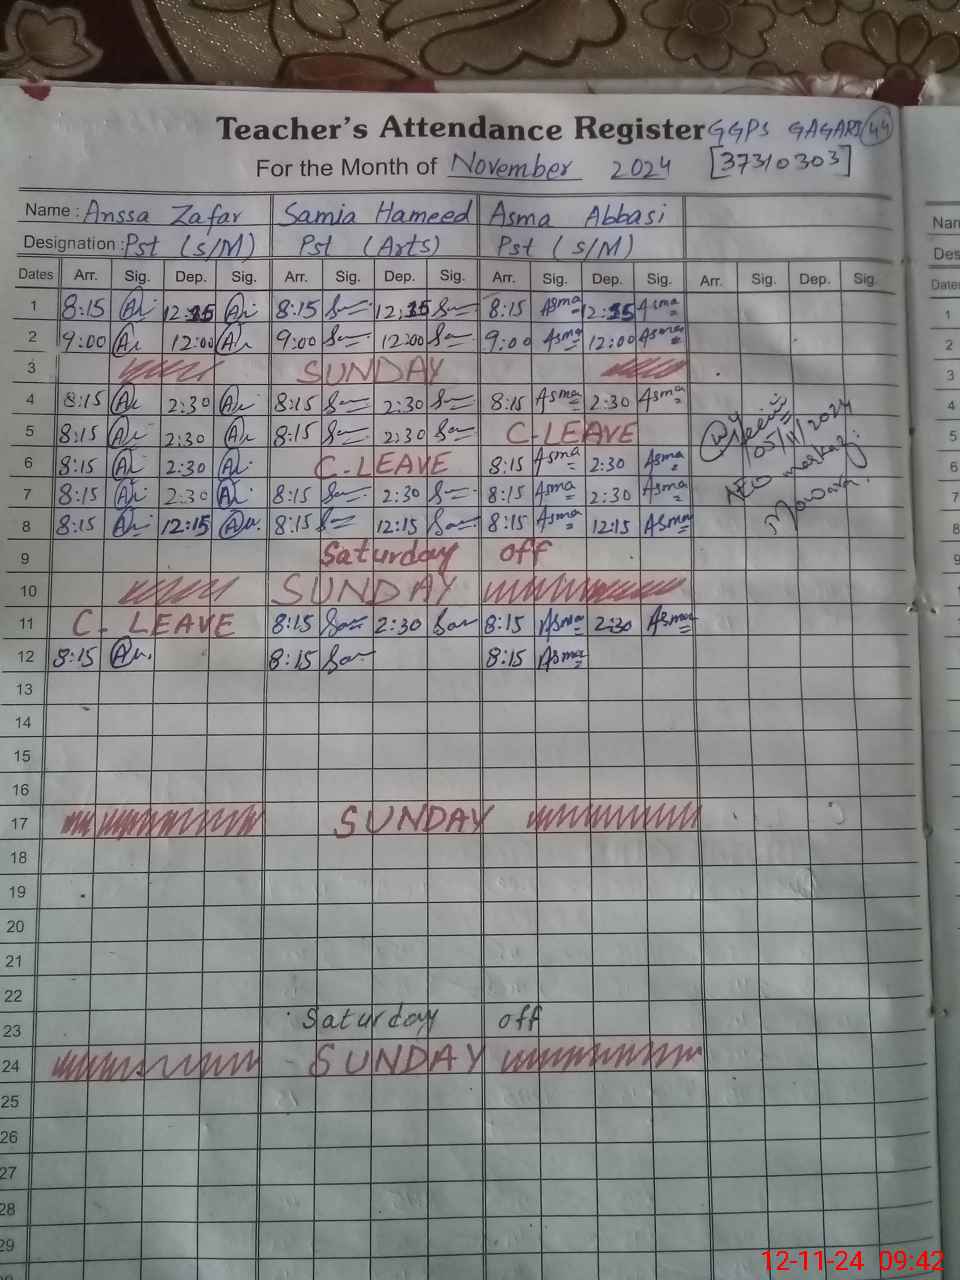 Teacher's Attendance Register GGPS GAGARI 44
For the Month of November 2024 [37310303]
Name : Anssa Zafar Samia Hameed Asma Abbasi
Designation : Pst (S/M) Pst (Arts) Pst (S/M)
Dates Arr. Sig. Dep. Sig. Arr. Sig. Dep. Sig. Arr. Sig. Dep. Sig. Arr. Sig. Dep. Sig.
1 8:15 12:15 8:15 12:15 8:15 Asma 12:15 Asma
2 9:00 12:00 9:00 12:00 9:00 Asma 12:00 Asma
3 SUNDAY
4 8:15 2:30 8:15 2:30 8:15 Asma 2:30 Asma
5 8:15 2:30 8:15 2:30 C-LEAVE 05/11/2024
6 8:15 2:30 C-LEAVE 8:15 Asma 2:30 Asma AEO markaz
7 8:15 2:30 8:15 2:30 8:15 Asma 2:30 Asma
8 8:15 12:15 8:15 12:15 8:15 Asma 12:15 Asma
9 Saturday off
10 SUNDAY
11 C-LEAVE 8:15 2:30 8:15 Asma 2:30 Asma
12 8:15 8:15 8:15 Asma
13
14
15
16
17 SUNDAY
18
19
20
21
22
23 Saturday off
24 SUNDAY
25
26
27
28
29
Nam
Des
Dates
1
2
3
4
5
6
7
8
9
12-11-24 09:42